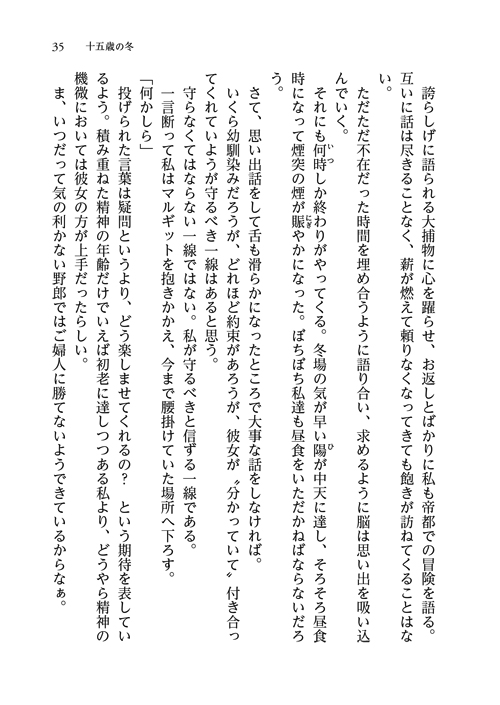 35　十五歳の冬
　誇らしげに語られる大捕物に心を躍らせ、お返しとばかりに私も帝都での冒険を語る。
互いに話は尽きることなく、薪が燃えて頼りなくなってきても飽きが訪ねてくることはな
い。
　ただただ不在だった時間を埋め合うように語り合い、求めるように脳は思い出を吸い込
んでいく。
　それにも何時しか終わりがやってくる。冬場の気が早い陽が中天に達し、そろそろ昼食
時になって煙突の煙が賑やかになった。ぼちぼち私達も昼食をいただかねばならないだろ
う。
　さて、思い出話をして舌も滑らかになったところで大事な話をしなければ。
　いくら幼馴染みだろうが、どれほど約束があろうが、彼女が〝分かっていて〟付き合っ
てくれていようが守るべき一線はあると思う。
　守らなくてはならない一線ではない。私が守るべきと信ずる一線である。
　一言断って私はマルギットを抱きかかえ、今まで腰掛けていた場所へ下ろす。
「何かしら」
　投げられた言葉は疑問というより、どう楽しませてくれるの？　という期待を表してい
るよう。積み重ねた精神の年齢だけでいえば初老に達しつつある私より、どうやら精神の
機微においては彼女の方が上手だったらしい。
　ま、いつだって気の利かない野郎ではご婦人に勝てないようできているからなぁ。